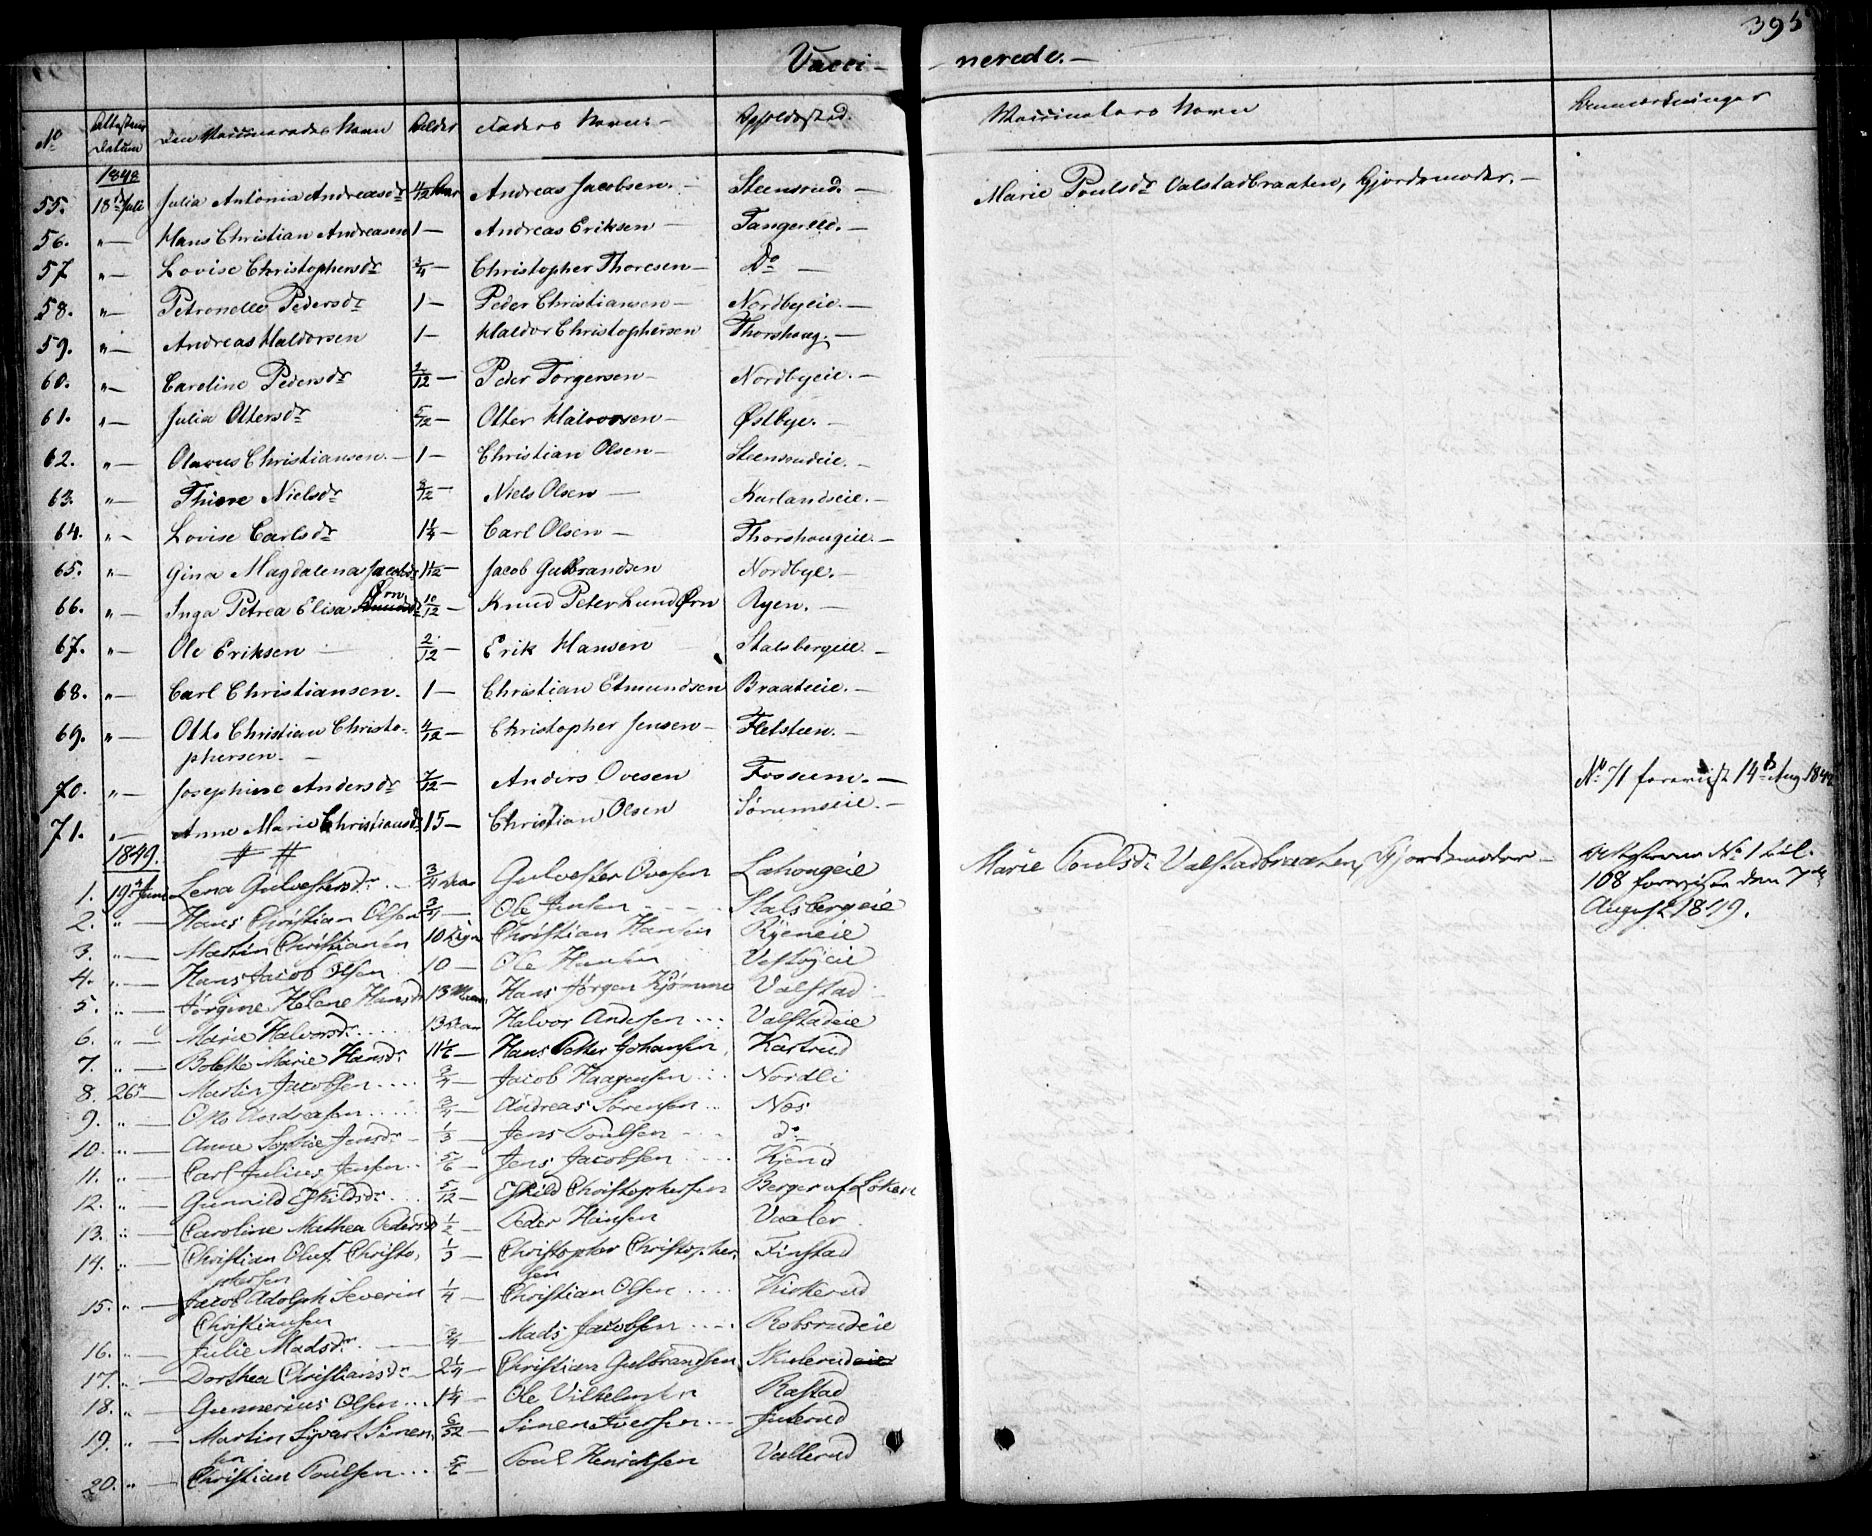 395
Vacci- nerede. -
No Attestens Datum Den Vaccineredes Navn Alder Faders Navn - Opholdssted. Vaccinators Navn Anmærkninger
1848
55. 18de Juli Julia Antonia Andreasdr 4/12 Aar Andreas Jacobsen. - Steensrud. - Marie Poulsdr Valstadbraaten, Gjordemoder. -
56. " - Hans Christian Andreasen 1 - Andreas Eriksen - Tangeneie. -
57 " - Lovise Christophersdr 3/4 - Christopher Thoresen - Do -
58. " - Petronelle Pedersdr 1 - Peder Christiansen - Nordbyeie. -
59. " - Andreas Haldorsen 1 - Haldor Christophersen Thorshaug. -
60. " - Caroline Pedersdr 2/12 - Peder Torgersen - Nordbyeie. -
61. " - Julia Ottersdr 5/12 - Otter Halvorsen - Østbye. -
62. " - Olavus Christiansen. - 1 - Christian Olsen - Steensrudeie. -
63. " - Thine Nielsdr 3/12 - Niels Olsen - Kurlandseie. -
64. " - Lovise Carlsdr 1 1/4 - Carl Olsen - Thorshaugeie. -
65. " - Gina Magdalena Jacobsdr 1 1/12 - Jacob Gulbrandsen Nordbye. -
66. " - Inga Petrea Elisa Ørn 10/12 - Knud Peter Lund Ørn Ryen. -
67. " - Ole Eriksen - 2/12 - Erik Hansen Stalsbergeie. -
68. " - Carl Christiansen. 1 - Christian Etmundsen Braateeie. -
69. " - Otto Christian Christo-
phersen. - 4/12 - Christopher Jensen - Fletsteen. -
70. " - Josephine Andersdr 7/12 - Anders Ovesen Fossum. - No 71 foreviist 14de Aug. 1848
71. " - Anne Marie Christiansdr 15 - Christian Olsen Sørumseie. -
1849.
1. 19de Juni Lena Gulvestersdr. .. 3/4 Aar Gulvester Ovesen Lahougeie Marie Poulsdr Valstadbraaten, Gjordemoder - Attesterne No 1 til
108 foreviste den 7de
August 1849.
2. " - Hans Christian Olsen 3/4 - Ole Jensen .... Stalsbergeie
3. " - Martin Christiansen 10 Uger Christian Hansen Ryeneie
4. " - Hans Jacob Olsen 10 - Ole Hansen Vestbyeie
5. " - Jørgine Helene Hansdr 13 Maan. Hans Jørgen Kjømme Valstad
6. " - Marie Halvorsdr. .... 13 Aar Halvor Andersen ... Valstadeie
7. " - Bolette Marie Hansdr 11 1/2 - Hans Petter Johansen, Kartrud
8. 26de - Martin Jacobsen .... 3/4 - Jacob Haagensen ... Nordli
9. " - Otto Andreasen ..... 3/4 - Andreas Sørensen .. Næs
10. " - Anne Sophie Jensdr - 1/3 - Jens Poulsen ... do
11. " - Carl Julius Jensen .. 5/6 - Jens Jacobsen .... Kjend
12. " - Gunnild Eskildsdr ... 5/12 - Eskild Christophersen Berger af Løken
13. " - Caroline Mathea Pedersdr 1/2 - Peder Hansen Vaaler
14. " - Christian Oluf Christo-
phersen 1/3 - Christopher Christopher-
sen Finstad
15. " - Jacob Adolph Severin
Christiansen 1/4 - Christian Olsen .... Kiskerud
16. " - Julie Madsdr. 3/4 - Mads Jacobsen .... Robsrudeie
17. " - Dorthea Christiansdr - 2 1/4 - Christian Gulbrandsen Skulerudeie
18. " - Gunnerius Olsen ... 1 1/4 - Ole Vilhelmsen Rastad
19. " - Martin Sivart Simen-
sen 6/52 - Simen Iversen ... Juterud
20. " - Christian Poulsen ... 5/6 - Poul Henriksen Vallerud